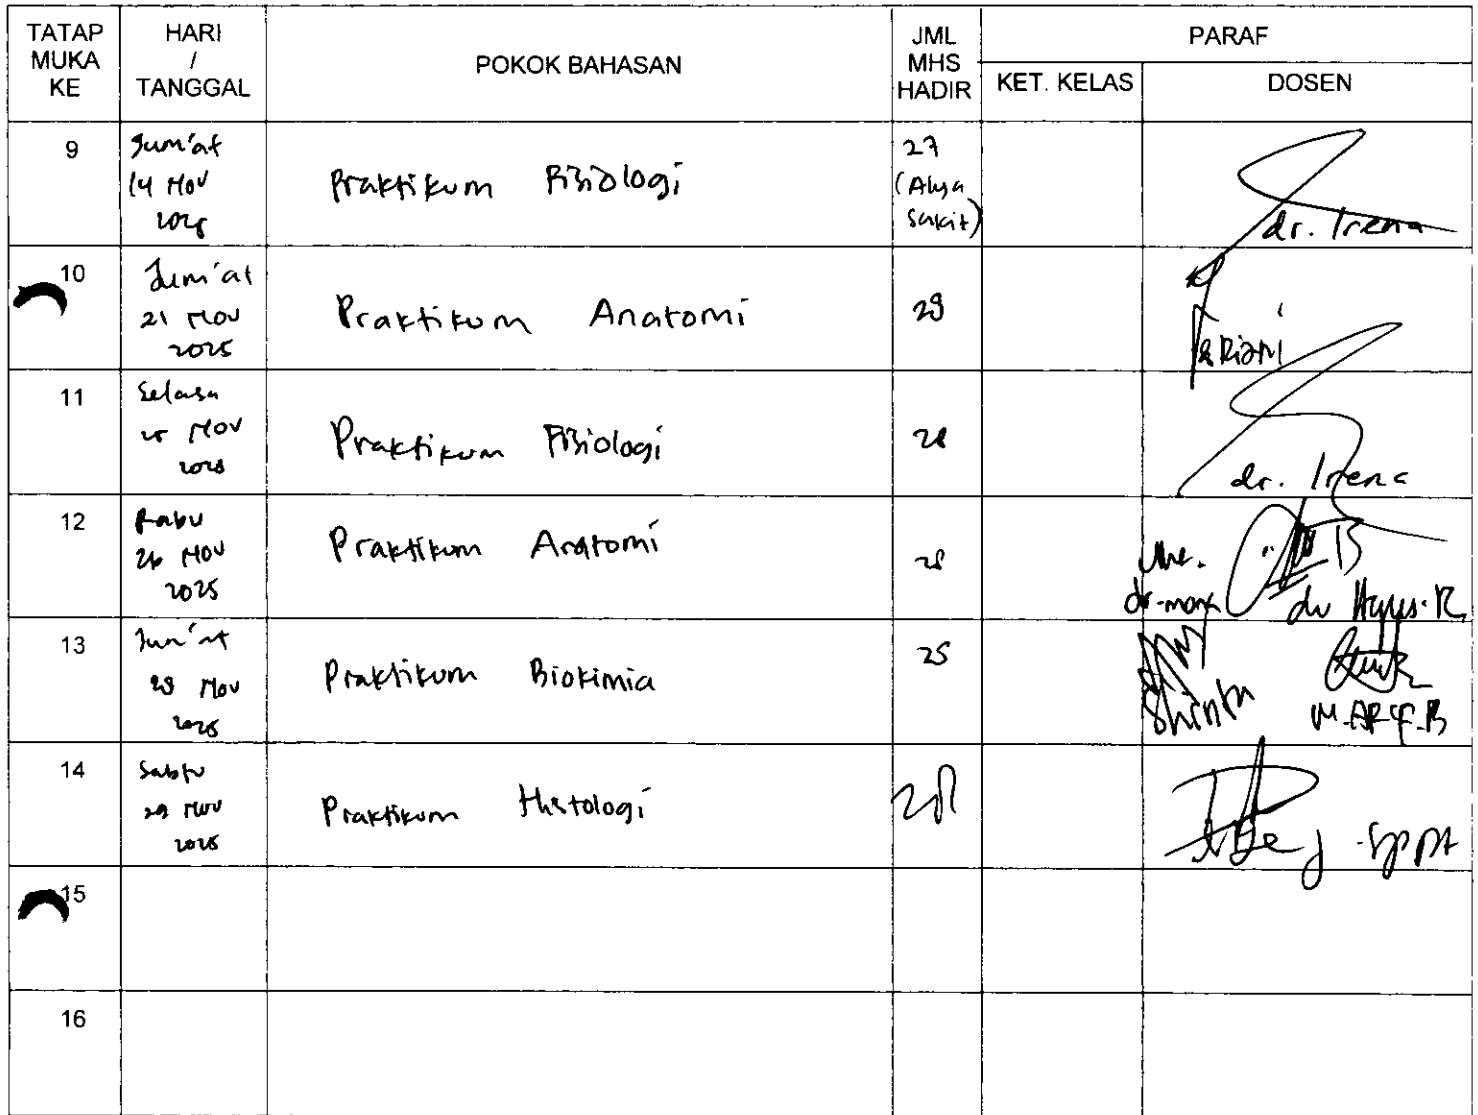 TATAP MUKA KE | HARI / TANGGAL | POKOK BAHASAN | JML MHS HADIR | PARAF
KET. KELAS | DOSEN
9 | Jum'at 14 Nov 2025 | Praktikum Fisiologi | 27 (Alya sakit) | dr. Irena
10 | Jum'at 21 Nov 2025 | Praktikum Anatomi | 28
11 | Selasa 25 Nov 2025 | Praktikum Fisiologi | 28 | dr. Irena
12 | Rabu 26 Nov 2025 | Praktikum Anatomi | 28
13 | Jum'at 28 Nov 2025 | Praktikum Biokimia | 25 | Shinta
14 | Sabtu 29 Nov 2025 | Praktikum Histologi | 28
15
16